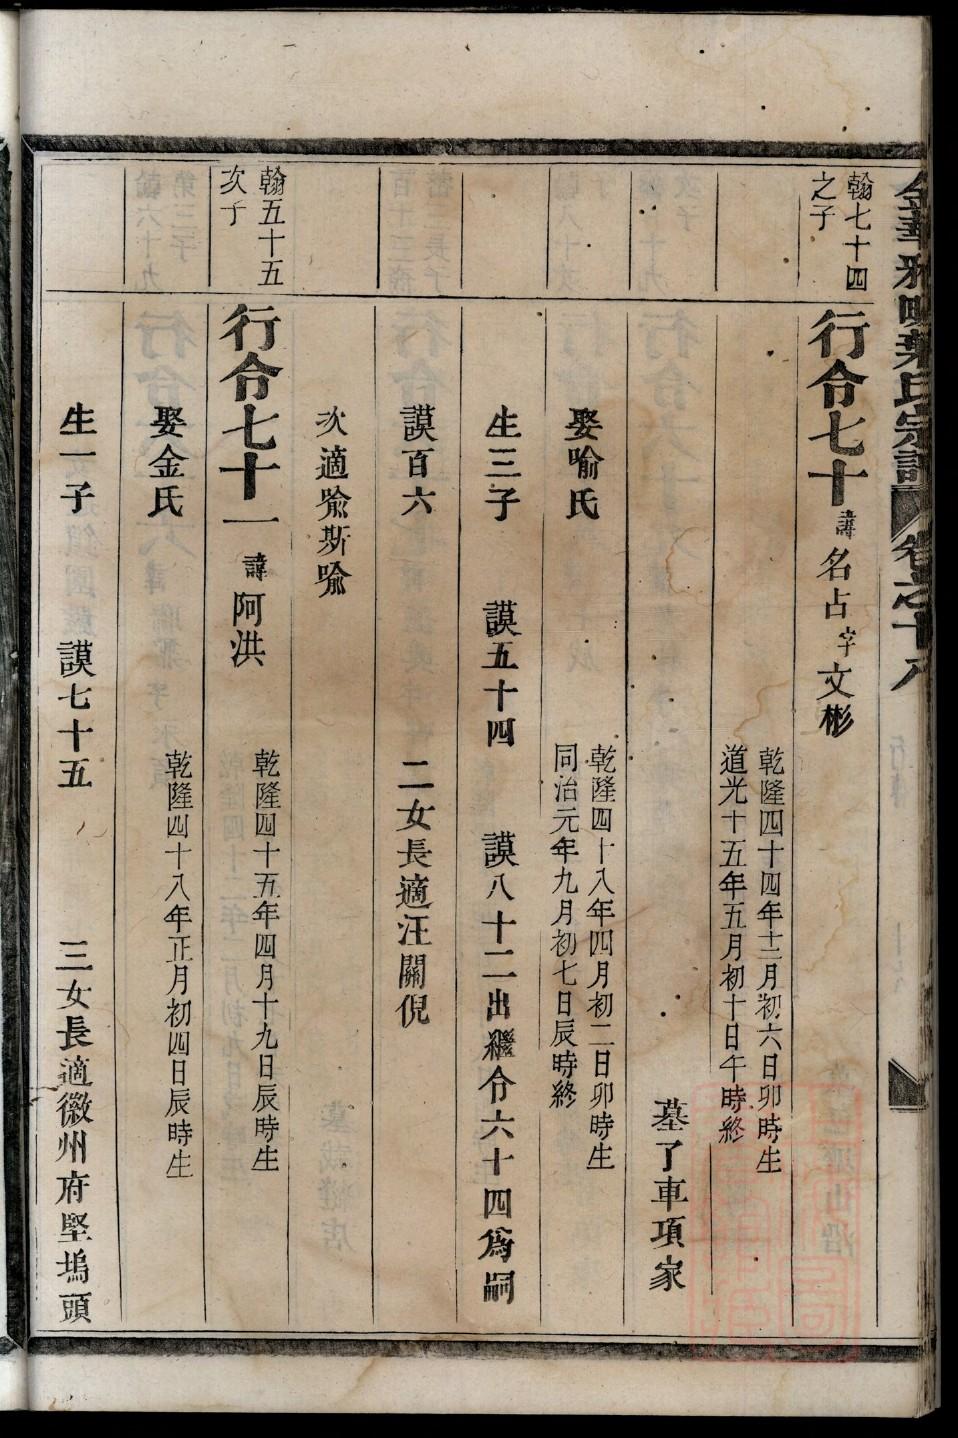 金華雅畈葉氏宗譜 卷之十八
翰七十四
之子
行令七十 諱名占字文彬
乾隆四十四年十二月初六日卯時生
道光十五年五月初十日午時終
墓了車項家
娶喻氏
乾隆四十八年四月初二日卯時生
同治元年九月初七日辰時終
生三子 謨五十四 謨八十二出繼令六十四為嗣
謨百六 二女長適汪關倪
次適喻斯喻
翰五十五
次子
行令七十一 諱阿洪
乾隆四十五年四月十九日辰時生
娶金氏
乾隆四十八年正月初四日辰時生
生一子 謨七十五 三女長適徽州府堅塢頭